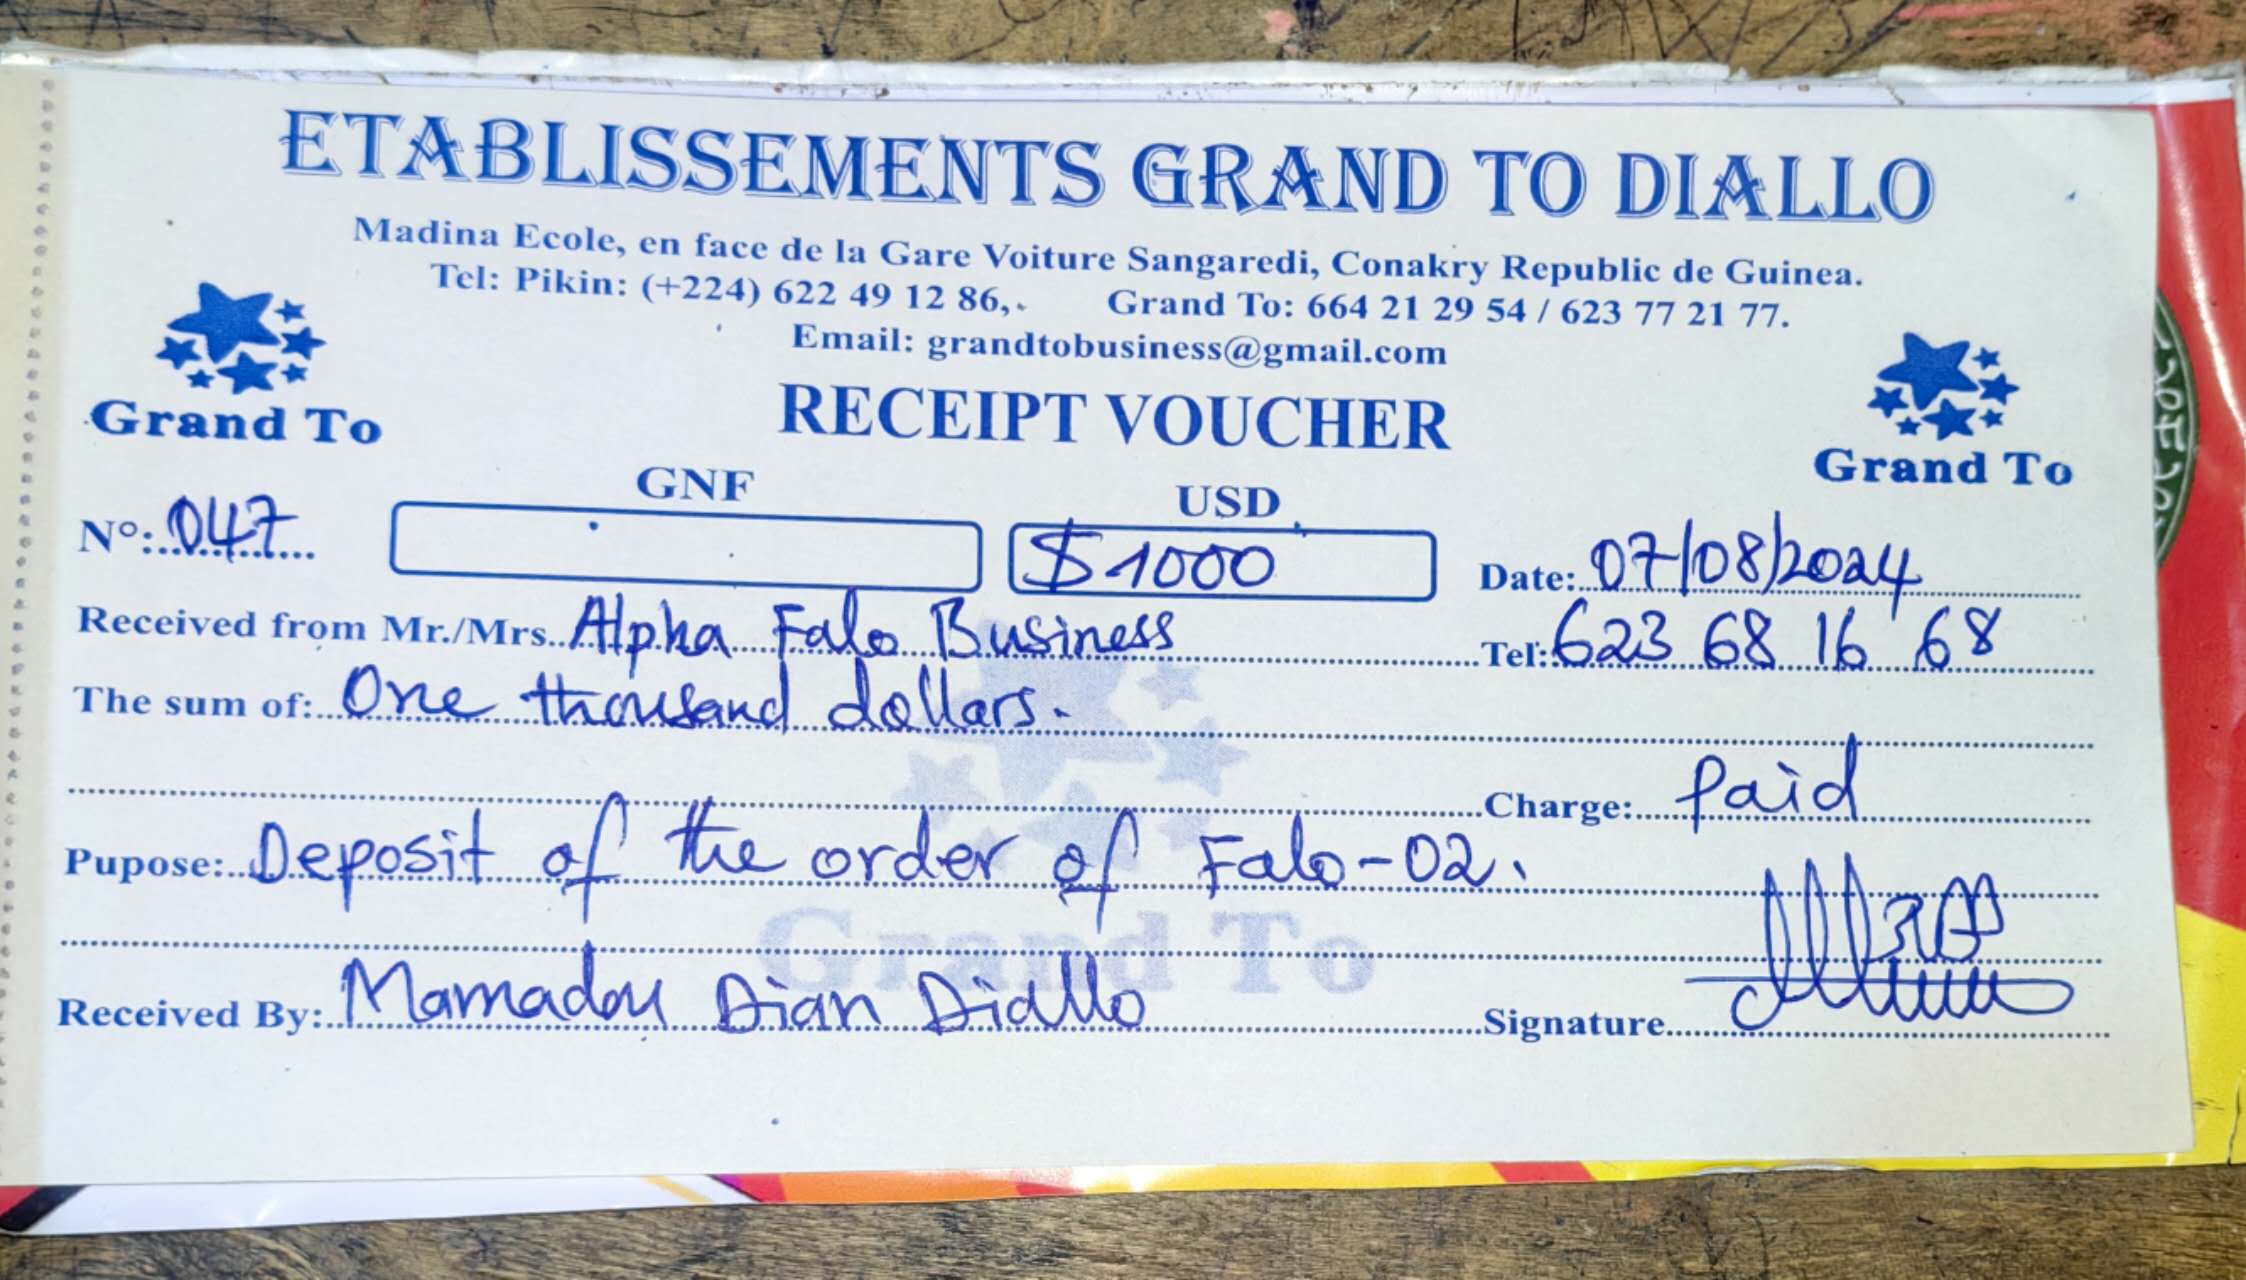 ETABLISSEMENTS GRAND TO DIALLO
Madina Ecole, en face de la Gare Voiture Sangaredi, Conakry Republic de Guinea.
Tel: Pikin: (+224) 622 49 12 86,. Grand To: 664 21 29 54 / 623 77 21 77.
Email: grandtobusiness@gmail.com
Grand To
RECEIPT VOUCHER
Grand To
GNF USD
N°: 047 $1000 Date: 07/08/2024
Received from Mr./Mrs. Alpha Falo Business Tel: 623 68 16 68
The sum of: One thousand dollars.
Charge: Paid
Pupose: Deposit of the order of Falo-02.
Grand To
Received By: Mamadou Dian Diallo Signature